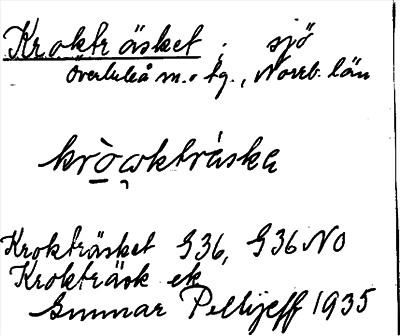 Krokträsket ; sjö
Överluleå sn. o tg., Norrb. län
krò̱ọktráska
Krokträsket G36, G36NO
Krokträsk ek
Gunnar Pellijeff 1935